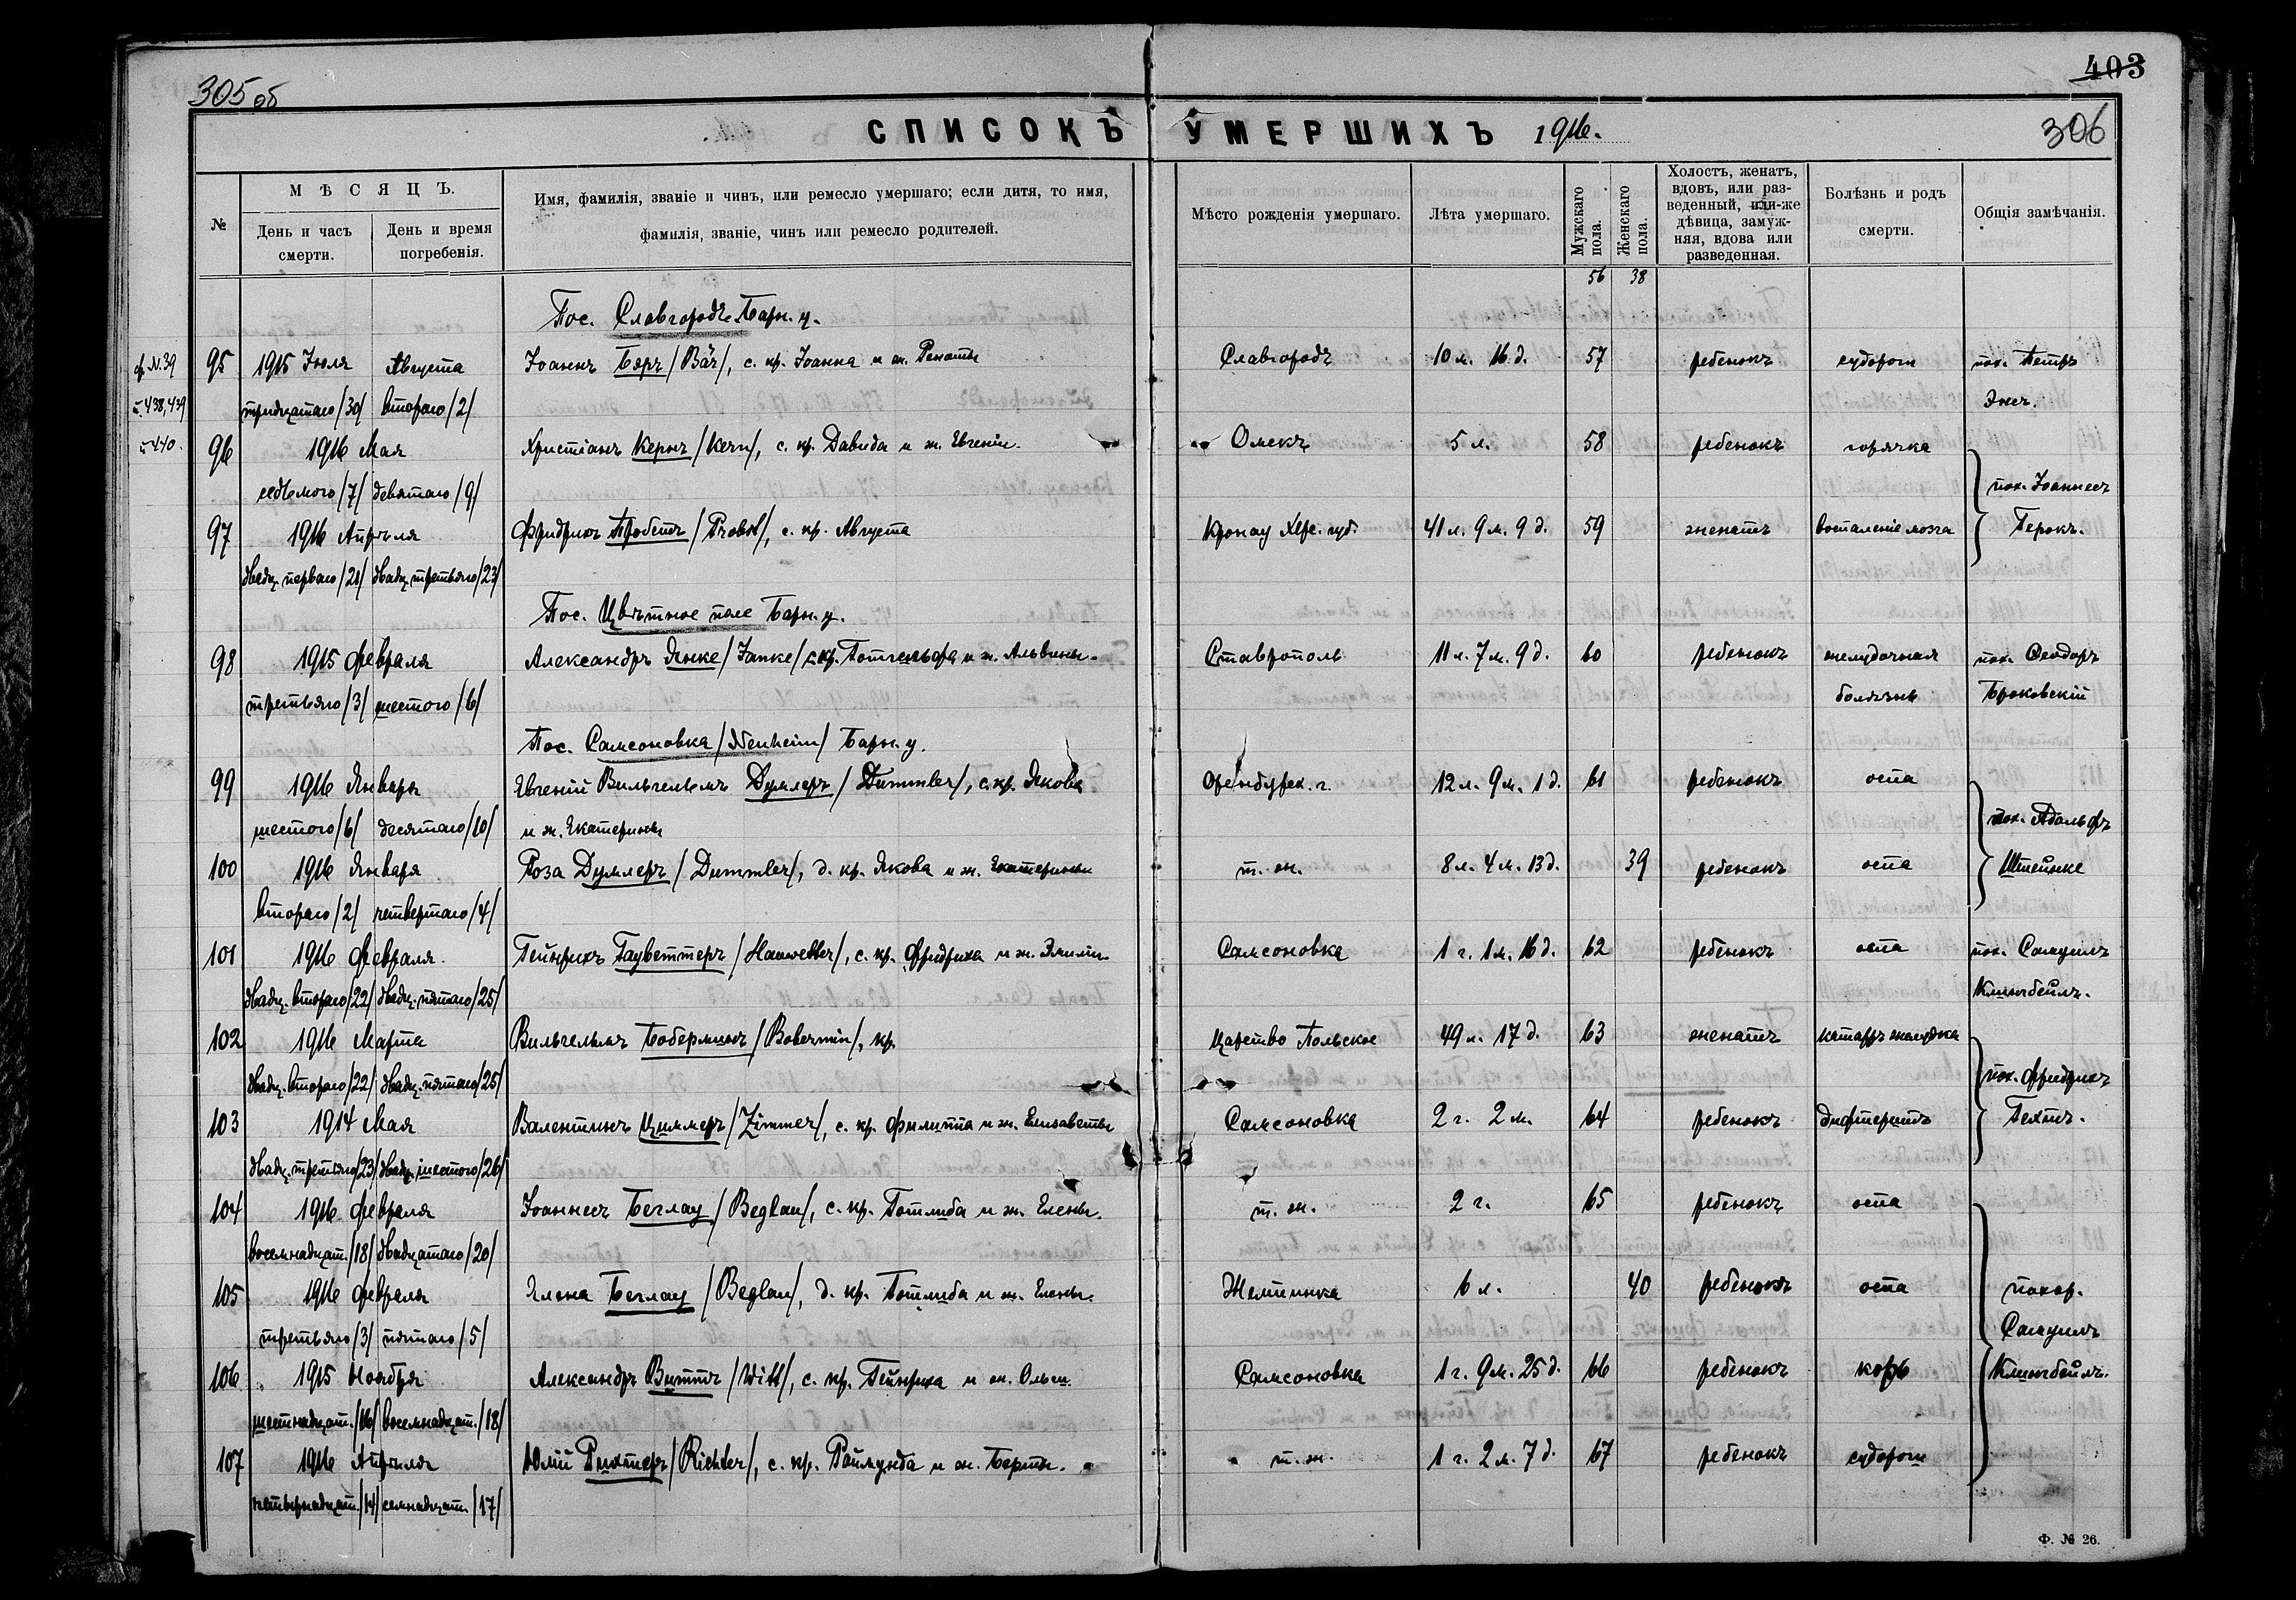 305 об
403
СПИСОКЪ УМЕРШИХЪ 1916.
306
№
МѢСЯЦЪ.
День и часъ смерти.
День и время погребенія.
Имя, фамилія, званіе и чинъ, или ремесло умершаго; если дитя, то имя,
фамилія, званіе, чинъ или ремесло родителей.
Мѣсто рожденія умершаго.
Лѣта умершаго.
Мужскаго пола.
Женскаго пола.
Холостъ, женатъ, вдовъ, или раз-веденный, или-же дѣвица, замуж-няя, вдова или разведенная.
Болѣзнь и родъ смерти.
Общія замѣчанія.
56 38
Пос. Славгородъ Барн. у.
ф. N. 39 95 1915 Іюля Августа Іоаннъ Бэръ /Bär/, с. кр. Іоанна и ж. Ренаты Славгородъ 10 м. 16 д. 57 ребенокъ судороги пох. Петръ
п. 438, 439 тридцатаго /30/ втораго /2/ Энсъ.
и 440. 96 1916 Мая Христіанъ Кернъ /Kern/, с. кр. Давида и ж. Евгеніи. Омскъ 5 л. 58 ребенокъ горячка
седьмого /7/ девятаго /9/ пох. Іоаннесъ
97 1916 Апрѣля Фридрихъ Пробстъ /Probst/, с. кр. Августа Кронау Херс. губ. 41 л. 9 м. 9 д. 59 женатъ воспаленіе мозга Герокъ.
двадц. перваго /21/ двадц. третьяго /23/
Пос. Цвѣтное поле Барн. у.
98 1915 Февраля Александръ Янке /Janke/ с. кр. Готгельфа и ж. Альвины. Ставрополь 11 л. 7 м. 9 д. 60 ребенокъ желудочная пох. Ѳеодоръ
третьяго /3/ шестого /6/ болѣзнь Броковскій
Пос. Самсоновка /Neuheim/ Барн. у.
99 1916 Января Евгеній Вильгельмъ Думлеръ /Dummler/, с. кр. Якова Оренбургск. г. 12 л. 9 м. 1 д. 61 ребенокъ оспа
шестого /6/ десятаго /10/ и ж. Екатерины пох. Адольфъ
100 1916 Января Роза Думлеръ /Dummler/, д. кр. Якова и ж. Екатерины т. ж. 8 л. 4 м. 13 д. 39 ребенокъ оспа Штейнке
втораго /2/ четвертаго /4/
101 1916 Февраля Гейнрихъ Гауветтеръ /Hauwetter/, с. кр. Фридриха и ж. Эмиліи Самсоновка 1 г. 1 м. 16 д. 62 ребенокъ оспа пох. Самуилъ
двадц. втораго /22/ двадц. пятаго /25/ Клингбейлъ.
102 1916 Марта Вильгельмъ Боберминъ /Bobermin/, кр. Царство Польское 49 л. 17 д. 63 женатъ катарръ желудка
двадц. втораго /22/ двадц. пятаго /25/ пох. Фридрихъ
103 1914 Мая Валентинъ Циммеръ /Zimmer/, с. кр. Филиппа и ж. Елизаветы Самсоновка 2 г. 2 м. 64 ребенокъ дифтеритъ Гехтъ.
двадц. третьяго /23/ двадц. шестого /26/
104 1916 Февраля Іоаннесъ Беглау /Beglau/, с. кр. Готлиба и ж. Елены. т. ж. 2 г. 65 ребенокъ оспа
восемнадцат. /18/ двадцатаго /20/
105 1916 Февраля Елена Беглау /Beglau/, д. кр. Готлиба и ж. Елены. 6 л. 40 ребенокъ оспа похор.
третьяго /3/ пятаго /5/ Самуилъ
106 1915 Ноября Александръ Виттъ /Witt/, с. кр. Гейнриха и ж. Ольги. Самсоновка 1 г. 9 м. 25 д. 66 ребенокъ корь Клингбейлъ.
шестнадцат. /16/ восемнадцат. /18/
107 1916 Апрѣля Юлій Рихтеръ /Richter/, с. кр. Раймунда и ж. Берты. т. ж. 1 г. 2 м. 7 д. 67 ребенокъ судороги
четырнадцат. /14/ семнадцат. /17/
Ф. № 26.